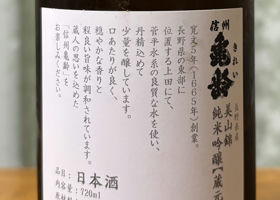 信州
亀齢
きれい
美山錦
純米吟醸【蔵元
寛文五年(1665年)創業。
長野県の東部に
位置する上田にて、
菅平水系の良質な水を使い、
丹精込めて
少量を醸しています。
口あたりが良く
穏やかな香りと
程良い旨味が調和されています。
蔵人の思いを込めた
「信州亀齢」を
お楽しみください。
日本酒
720ml